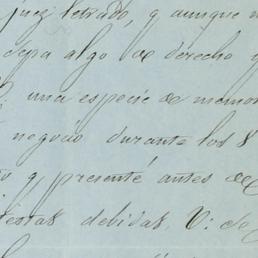 juez letrado, y aunque
sepa algo de derecho
una especie de memo
negocio durante los 8
y presenté antes de
estas debidas, V. de